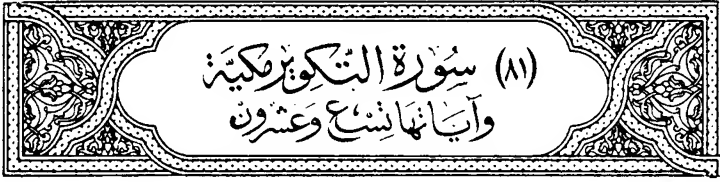 (٨١) سُورَة التَّكوِير مَكيَّة
وَآيَاتهَا تِسْع وَعشْرون